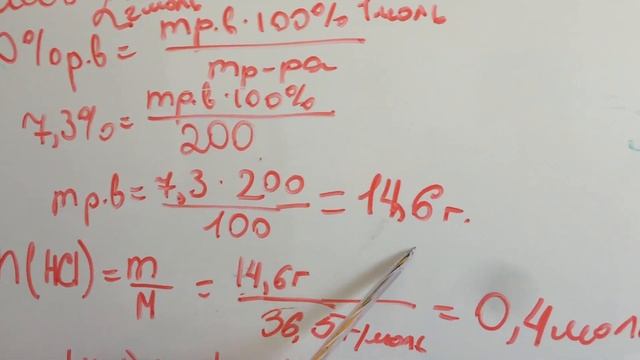 2 моль 1 моль
%р.в = mр.в · 100% / mр-ра
7,3% = mр.в · 100% / 200
mр.в = 7,3 · 200 / 100 = 14,6 г.
n(HCl) = m / M = 14,6 г / 36,5 г/моль = 0,4 моль